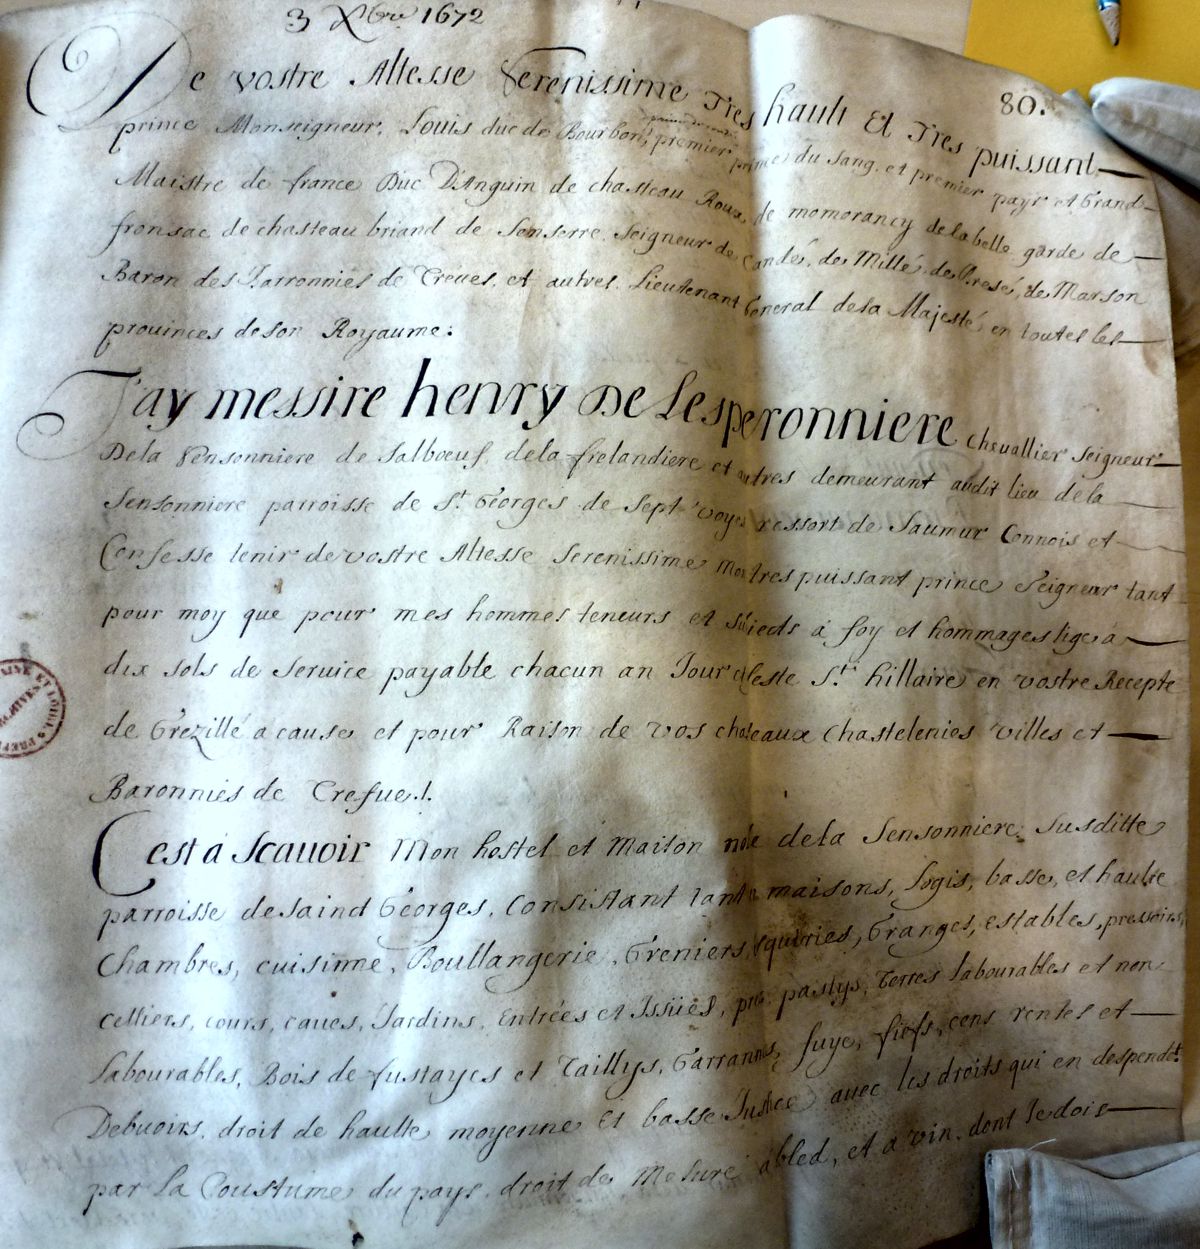 3 Xbre 1672
80.
De vostre Altesse Serenissime Tres hault Et Tres puissant
prince Monseigneur, Louis duc de Bourbon, premier prince du sang, et premier payr et Grand
Maistre de france Duc D'Anguin de chasteau Roux, de momorancy de la belle garde de
fronsac de chasteau briand de Senserre, Seigneur de Candé, de Millé, de Bresé, de Marson
Baron des Barronnies de Creues, et autres Lieutenant General de sa Majesté en toutes les
prouinces de son Royaume:
J'ay messire henry De Lesperonniere chevallier seigneur
De la Sensonniere de Salboeuf, de la frelandiere et autres demeurant audit lieu de la
Sensonniere parroisse de St Georges de Sept voyes ressort de Saumur Connois et
Confesse tenir de vostre Altesse Serenissime Mon tres puissant prince Seigneur tant
pour moy que pour mes hommes teneurs et suiects a foy et hommages lige a
dix sols de service payable chacun an Jour et feste St hillaire en vostre Recepte
de Grezillé a cause et pour Raison de vos chateaux chastelenies villes et
Baronnies de Crefue.
C'est a scauoir Mon hostel et Maison noble de la Sensonniere susditte
parroisse de saind Georges, Consistant tant en maisons, Logis, basse, et haulte
chambres, cuisinne, Boullangerie, Greniers, Esquiries, Granges, estables, pressoirs,
celliers, cours, caues, Jardins, Entrées et Issües, prés pastys, Terres labourables et non
labourables, Bois de fustayes et Taillys, Garrannes, fuye, fiefs, cens rentes et
Debuoirs, droit de haulte moyenne Et basse Justice avec les droits qui en despendt
par La Coustume du pays, droit de Mesure a bled, et a vin, dont Je dois